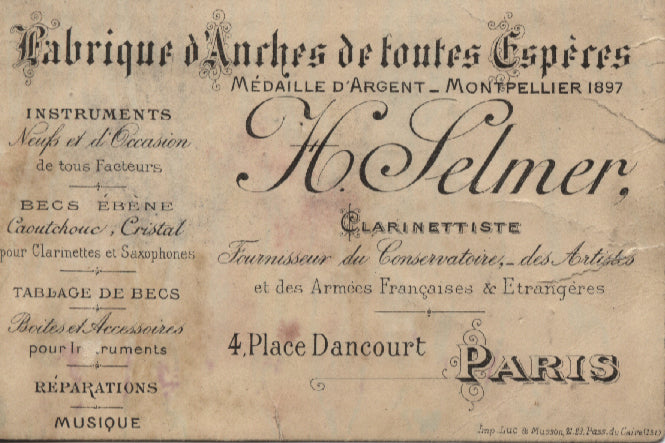 Fabrique d'Anches de toutes Espèces
MÉDAILLE D'ARGENT _ MONTPELLIER 1897
INSTRUMENTS
Neufs et d'Occasion
de tous Facteurs
BECS ÉBÈNE
Caoutchouc, Cristal
pour Clarinettes et Saxophones
TABLAGE DE BECS
Boîtes et Accessoires
pour In ruments
RÉPARATIONS
MUSIQUE
H. Selmer,
CLARINETTISTE
Fournisseur du Conservatoire,_ des Artistes
et des Armées Françaises & Etrangères
4, Place Dancourt
PARIS
Imp. Luc & Musson, Pass. du Caire